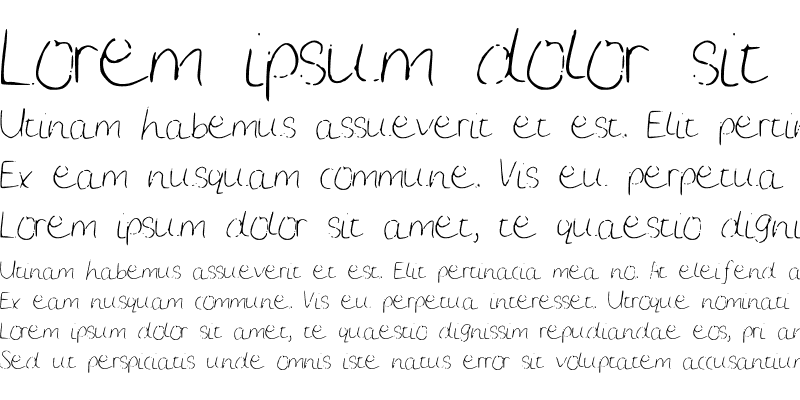 Lorem ipsum dolor sit
Utinam habemus assueverit et est. Elit pertin
Ex eam nusquam commune. Vis eu perpetua
Lorem ipsum dolor sit amet, te quaestio digni
Utinam habemus assueverit et est. Elit pertinacia mea no. At eleifend a
Ex eam nusquam commune. Vis eu perpetua interesset. Utroque nominati
Lorem ipsum dolor sit amet, te quaestio dignissim repudiandae eos, pri an
Sed ut perspiciatis unde omnis iste natus error sit voluptatem accusantium